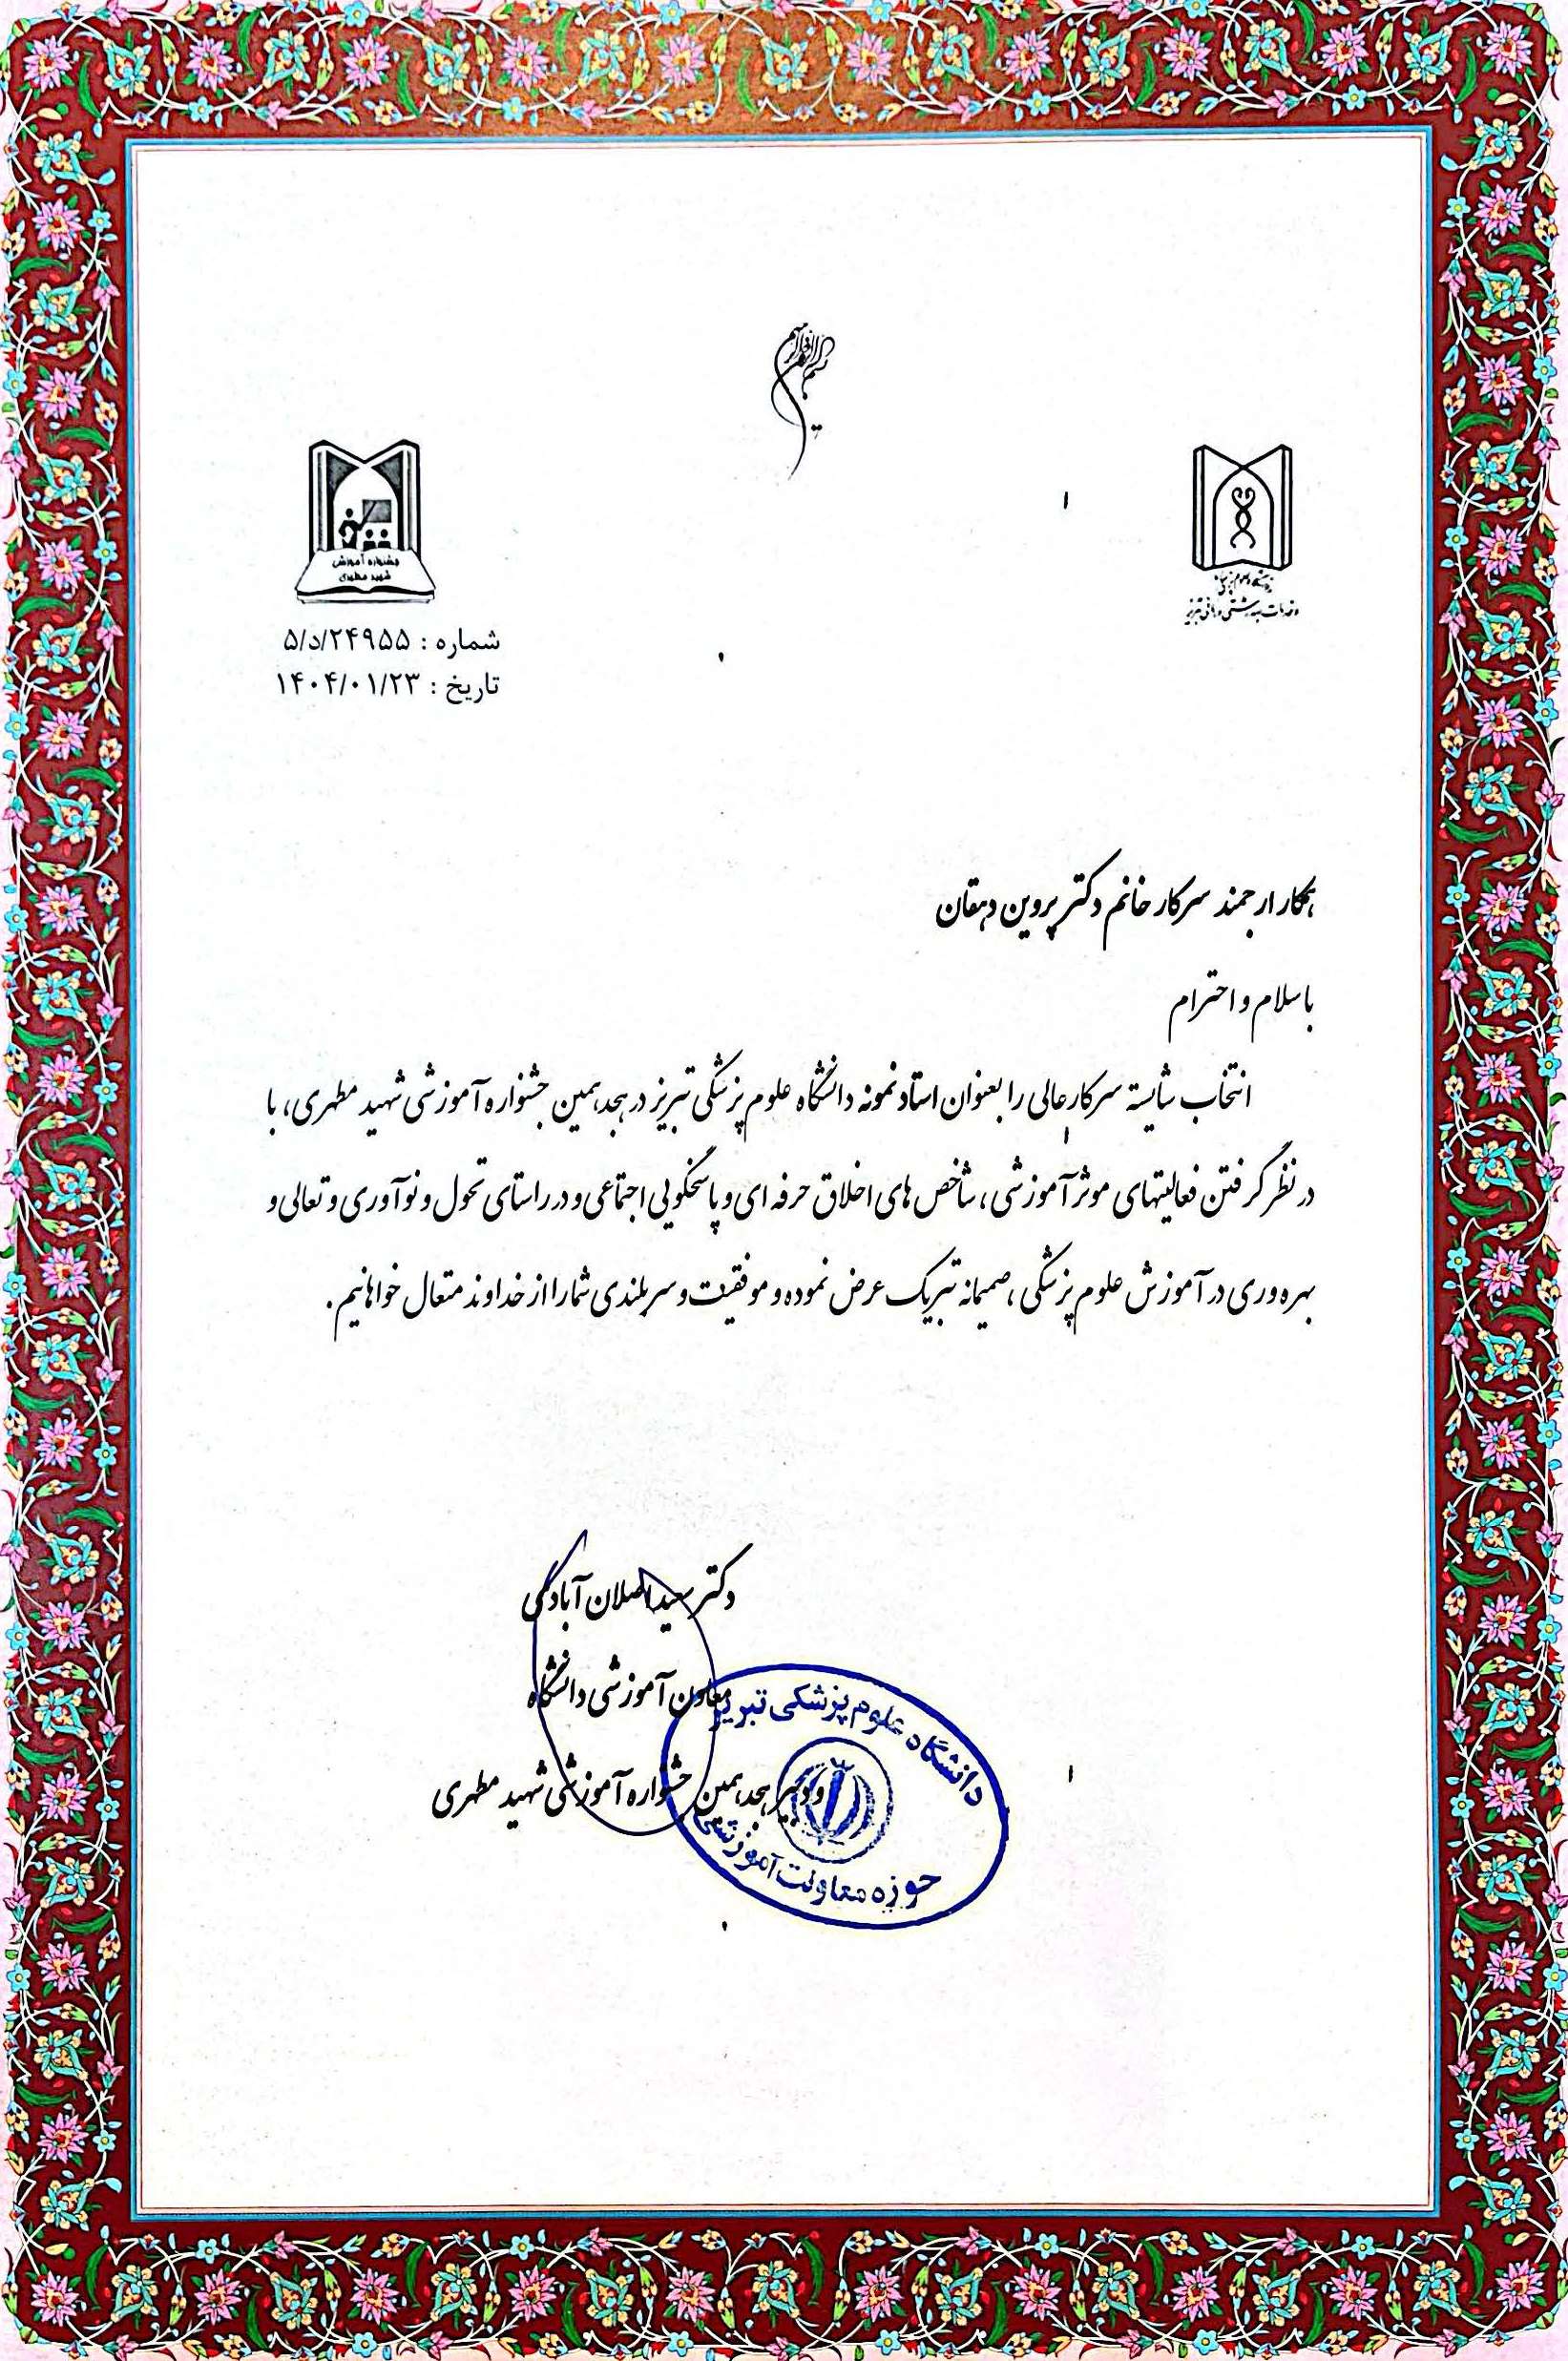 بسم الله الرحمن الرحیم
دانشگاه علوم پزشکی
و خدمات بهداشتی درمانی تبریز
جشنواره آموزشی
شهید مطهری
شماره : ۵/د/۲۴۹۵۵
تاریخ : ۱۴۰۴/۰۱/۲۳
همکار ارجمند سرکار خانم دکتر پروین دهقان
با سلام و احترام
انتخاب شایسته سرکارعالی را بعنوان استاد نمونه دانشگاه علوم پزشکی تبریز در هجدهمین جشنواره آموزشی شهید مطهری، با
در نظر گرفتن فعالیتهای موثر آموزشی، شاخص های اخلاق حرفه ای و پاسخگویی اجتماعی و در راستای تحول و نوآوری و تعالی و
بهره وری در آموزش علوم پزشکی، صمیمانه تبریک عرض نموده و موفقیت و سربلندی شما را از خداوند متعال خواهانیم.
دکتر سعید اصلان آبادی
معاون آموزشی دانشگاه
و دبیر هجدهمین جشنواره آموزشی شهید مطهری
دانشگاه علوم پزشکی تبریز
حوزه معاونت آموزشی